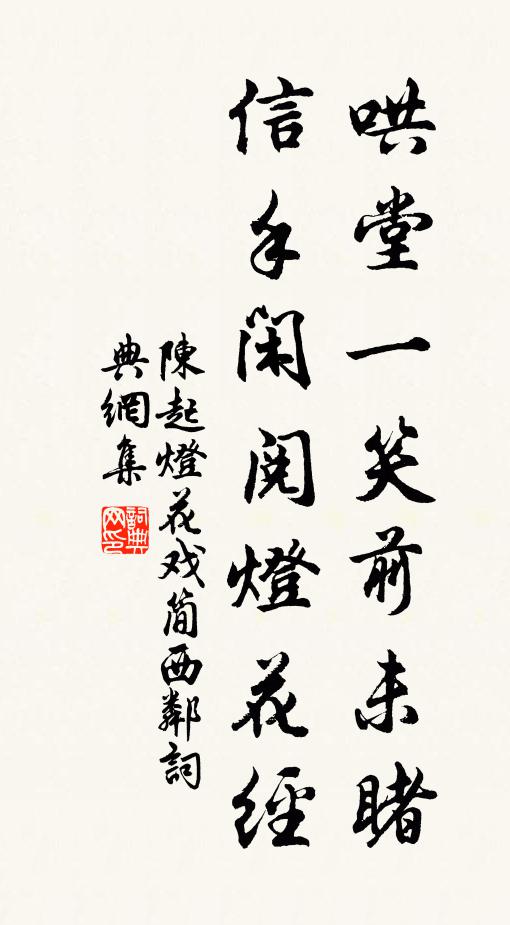 哄堂一笑前未睹
信手閑閱燈花經
陳起燈花戏简西鄰詞
典網集
詞典網印